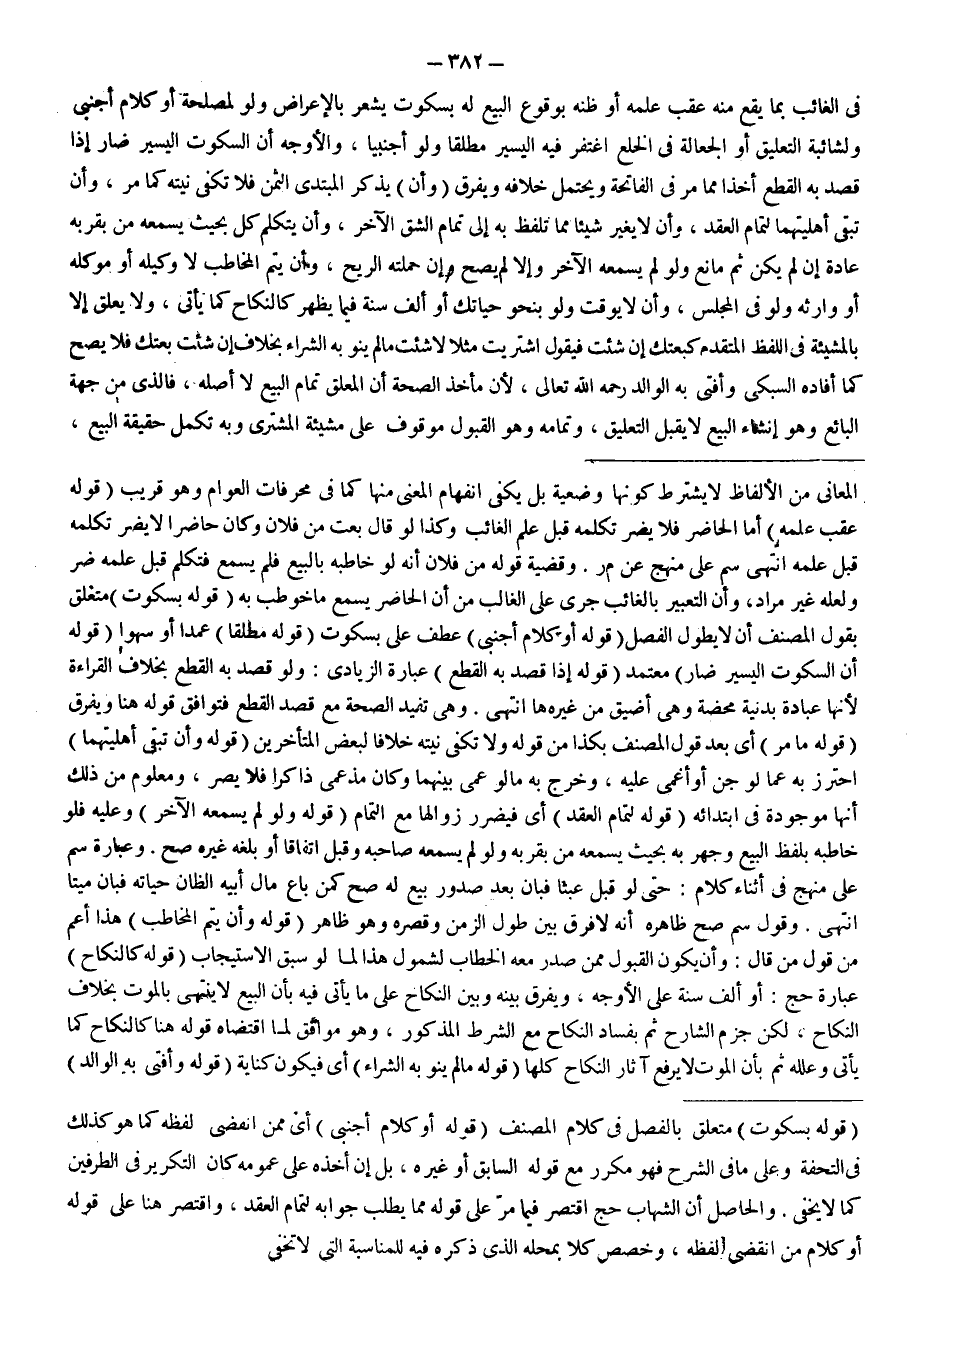 — ٣٨٢ —
فى الغائب بما يقع منه عقب علمه أو ظنه بوقوع البيع له بسكوت يشعر بالإعراض ولو لمصلحة أو كلام أجنبى
ولشائبة التعليق أو الجعالة فى الخلع اغتفر فيه اليسير مطلقا ولو أجنبيا ، والأوجه أن السكوت اليسير ضار إذا
قصد به القطع أخذا مما مر فى الفاتحة ويحتمل خلافه ويفرق ( وأن ) يذكر المبتدى الثمن فلا تكفى نيته كما مر ، وأن
تبقى أهليتهما لتمام العقد ، وأن لايغير شيئا مما تلفظ به إلى تمام الشق الآخر ، وأن يتكلم كل بحيث يسمعه من بقربه
عادة إن لم يكن ثم مانع ولو لم يسمعه الآخر وإلا لم يصح وإن حملته الريح ، وأن يتم المخاطب لا وكيله أو موكله
أو وارثه ولو فى المجلس ، وأن لايوقت ولو بنحو حياتك أو ألف سنة فيما يظهر كالنكاح كما يأتى ، ولا يعلق إلا
بالمشيئة فى اللفظ المتقدم كبعتك إن شئت فيقول اشتريت مثلا لاشئت مالم ينو به الشراء بخلاف إن شئت بعتك فلا يصح
كما أفاده السبكى وأفتى به الوالد رحمه الله تعالى ، لأن مأخذ الصحة أن المعلق تمام البيع لا أصله ، فالذى من جهة
البائع وهو إنشاء البيع لايقبل التعليق ، وتمامه وهو القبول موقوف على مشيئة المشترى وبه تكمل حقيقة البيع ،
المعانى من الألفاظ لايشترط كونها وضعية بل يكفى انفهام المعنى منها كما فى محرفات العوام وهو قريب ( قوله
عقب علمه ) أما الحاضر فلا يضر تكلمه قبل علم الغائب وكذا لو قال بعت من فلان وكان حاضرا لايضر تكلمه
قبل علمه انتهى سم على منهج عن مر . وقضية قوله من فلان أنه لو خاطبه بالبيع فلم يسمع فتكلم قبل علمه ضر
ولعله غير مراد، وأن التعبير بالغائب جرى على الغالب من أن الحاضر يسمع ماخوطب به ( قوله بسكوت ) متعلق
بقول المصنف أن لايطول الفصل ( قوله أو كلام أجنبى ) عطف على بسكوت ( قوله مطلقا ) عمدا أو سهوا ( قوله
أن السكوت اليسير ضار ) معتمد ( قوله إذا قصد به القطع ) عبارة الزيادى : ولو قصد به القطع بخلاف القراءة
لأنها عبادة بدنية محضة وهى أضيق من غيرها انتهى . وهى تفيد الصحة مع قصد القطع فتوافق قوله هنا ويفرق
( قوله ما مر ) أى بعد قول المصنف بكذا من قوله ولا تكفى نيته خلافا لبعض المتأخرين ( قوله وأن تبقى أهليتهما )
احترز به عما لو جن أو أغمى عليه ، وخرج به مالو عمى بينهما وكان مذعمى ذاكرا فلا يصر ، ومعلوم من ذلك
أنها موجودة فى ابتدائه ( قوله لتمام العقد ) أى فيضرر زوالها مع التمام ( قوله ولو لم يسمعه الآخر ) وعليه فلو
خاطبه بلفظ البيع وجهر به بحيث يسمعه من بقربه ولو لم يسمعه صاحبه وقبل اتفاقا أو بلغه غيره صح . وعبارة سم
على منهج فى أثناء كلام : حتى لو قبل عبثا فبان بعد صدور بيع له صح كمن باع مال أبيه الظان حياته فبان ميتا
انتهى . وقول سم صح ظاهره أنه لافرق بين طول الزمن وقصره وهو ظاهر ( قوله وأن يتم المخاطب ) هذا أعم
من قول من قال : وأن يكون القبول ممن صدر معه الخطاب لشمول هذا لما لو سبق الاستيجاب ( قوله كالنكاح )
عبارة حج : أو ألف سنة على الأوجه ، ويفرق بينه وبين النكاح على ما يأتى فيه بأن البيع لاينتهى بالموت بخلاف
النكاح ، لكن جزم الشارح ثم بفساد النكاح مع الشرط المذكور ، وهو موافق لما اقتضاه قوله هنا كالنكاح كما
يأتى وعلله ثم بأن الموت لايرفع آثار النكاح كلها ( قوله مالم ينو به الشراء ) أى فيكون كناية ( قوله وأفتى به الوالد )
( قوله بسكوت ) متعلق بالفصل فى كلام المصنف ( قوله أو كلام أجنبى ) أى ممن انقضى لفظه كما هو كذلك
فى التحفة وعلى مافى الشرح فهو مكرر مع قوله السابق أو غيره ، بل إن أخذه على عمومه كان التكرير فى الطرفين
كما لايخفى . والحاصل أن الشهاب حج اقتصر فيما مرّ على قوله مما يطلب جوابه لتمام العقد ، واقتصر هنا على قوله
أو كلام من انقضى لفظه ، وخصص كلا بمحله الذى ذكره فيه للمناسبة التى لاتخفى